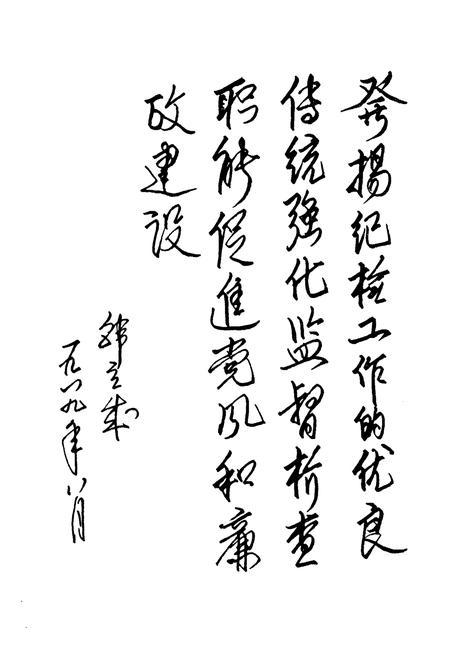 發揚纪检工作的优良
传统强化监督检查
职能促進党风和廉
政建设
韩立成
一九八九年八月